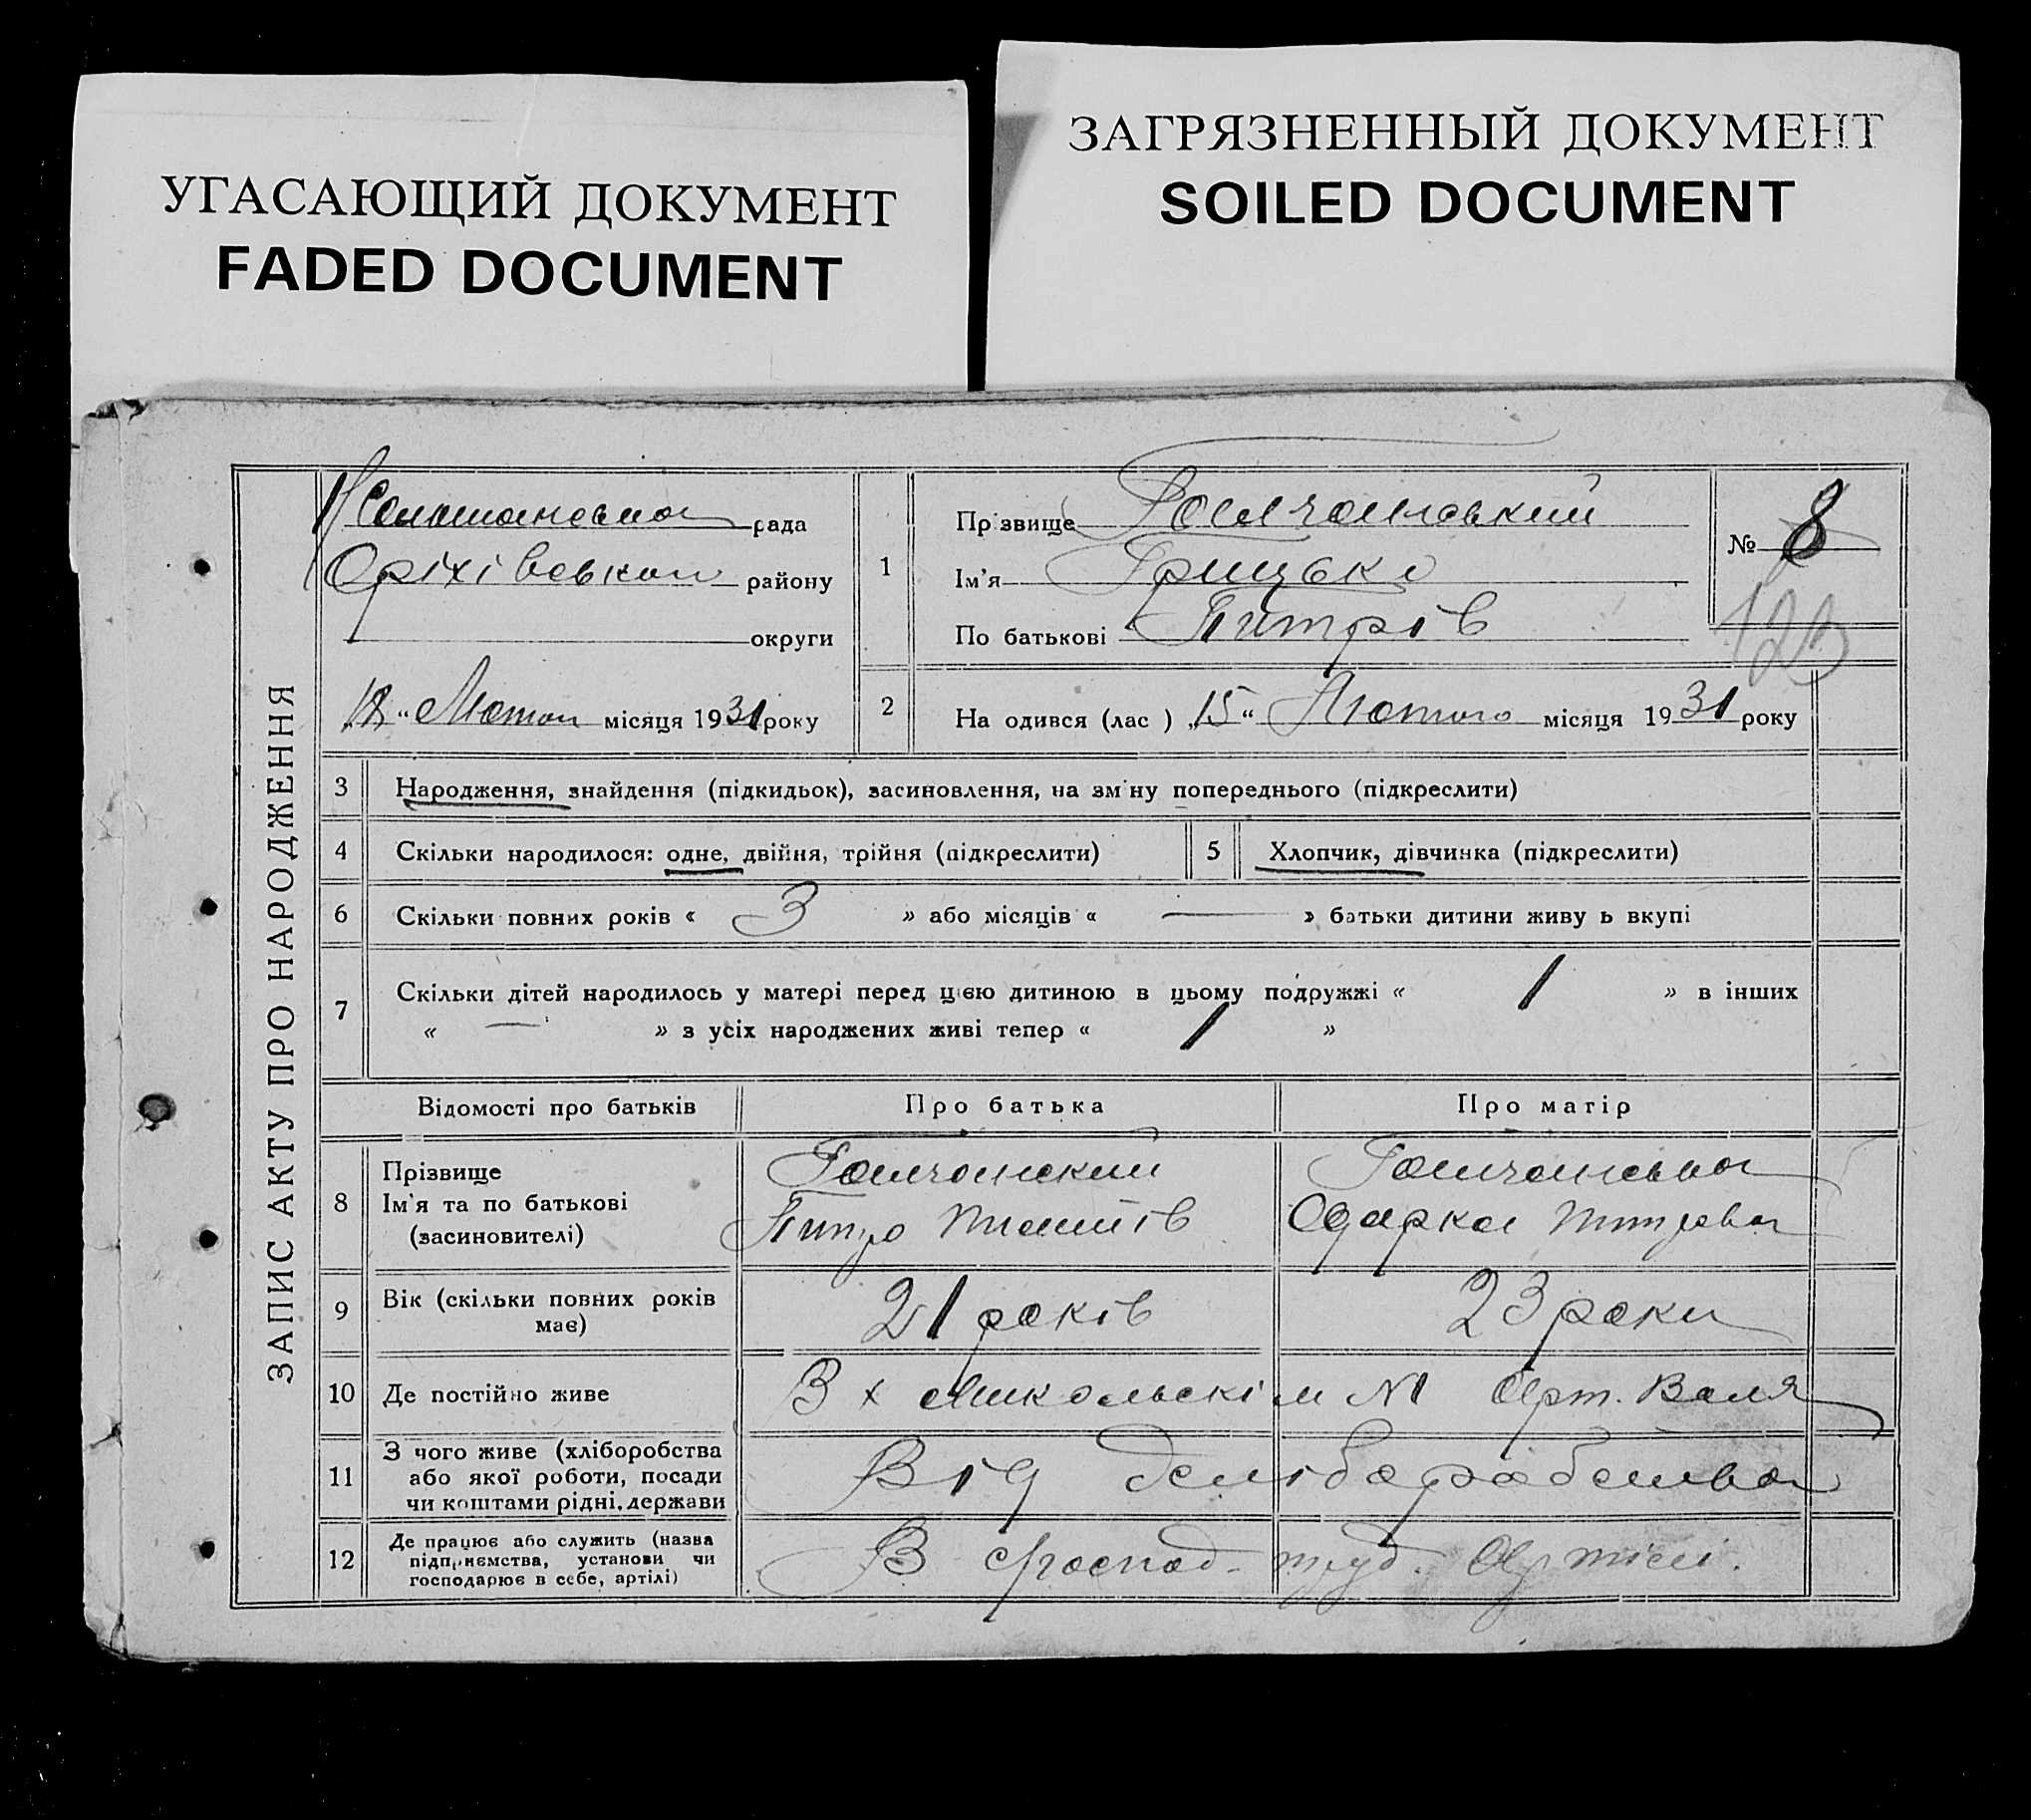 УГАСАЮЩИЙ ДОКУМЕНТ
FADED DOCUMENT
ЗАГРЯЗНЕННЫЙ ДОКУМЕНТ
SOILED DOCUMENT
ЗАПИС АКТУ ПРО НАРОДЖЕННЯ
рада
Оріхівського району
округи
18 " Лютого місяця 1931 року
1
Прізвище
Ім'я Грицько
По батькові Питрів
№ 8
2
На одився (лас ) „ 15 “ Лютого місяця 1931 року
3 Народження, знайдення (підкидьок), засиновлення, на зм ну попереднього (підкреслити)
4 Скільки народилося: одне, двійня, трійня (підкреслити)
5 Хлопчик, дівчинка (підкреслити)
6 Скільки повних років « 3 » або місяців « — » батьки дитини живу ь вкупі
7 Скільки дітей народилось у матері перед цією дитиною в цьому подружжі « 1 » в інших
« — » з усіх народжених живі тепер « 1 »
Відомості про батьків Про батька Про матір
8 Прізвище
Ім'я та по батькові
(засновителі)
Питро
Одарка
9 Вік (скільки повних років
має)
21 років 23 роки
10 Де постійно живе В х Микольскім №1 Арт. Воля
11 З чого живе (хліборобства
або якої роботи, посади
чи коштами рідні, держави
Від хліборобства
12 Де працює або служить (назва
підприємства, установи чи
господарює в себе, артілі)
В господ. труд. Артілі.